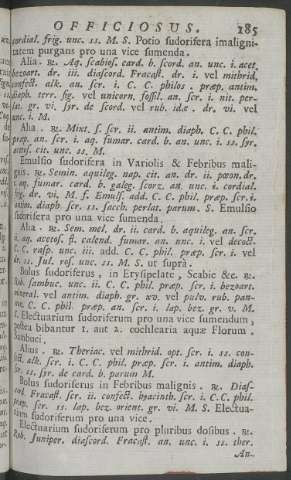 OFFICIOSUS. 185
cordial. frig. unc. ii. M. S. Potio sudorifera imaligni-
tatem purgans pro una vice sumenda.
Alia. ℞. Aq. scabios. card. b. scord. an. unc. i. acet.
bezoart. dr. iii. diascord. Fracast. dr. i. vel mithrid.
confect. alk. an. scr. i. C. C. philos. præp. antim.
diaph. terr. sig. vel unicorn. fossil. an. scr. i. nit. per-
lat. gr. vi. syr. de scord. vel rub. idæ. dr. vi. vel
unc. i. M.
Alia. ℞. Mixt. s. scr. ii. antim. diaph. C. C. phil.
præp. an. scr. i. aq. fumar. card. b. an. unc. i. ss. syr.
cit. unc. ss. M.
Emulsio sudorifera in Variolis & Febribus mali-
gnis. ℞. Semin. aquileg. nap. cit. an. dr. ii. pæon. dr.
i. aq. fumar. card. b. galeg. scorz. an. unc. i. cordial.
frig. dr. vi. M. f. Emuls. add. C. C. phil. præp. scr. i.
antim. diaph. scr. ss. sacch. perlat. parum. S. Emulsio
sudorifera pro una vice sumenda.
Alia. ℞. Sem. mel. dr. ii. card. b. aquileg. an. scr.
aq. acetos. fl. calend. fumar. an. unc. i. vel decoct.
C. C. rasp. unc. iii. add. C. C. phil. præp. scr. i. vel
ss. Jul. ros. unc. ss. M. S. ut suprà.
Bolus sudoriferus, in Erysipelate, Scabie &c. ℞.
Rob. sambuc. unc. ii. C. C. phil. præp. scr. i. bezoart.
mineral. vel antim. diaph. gr. xv. vel pulv. rub. pan-
C. C. phil. præp. an. scr. i. lap. bez. gr. v. M.
f. Electuarium sudoriferum pro una vice sumendum,
postea bibantur 1. aut 2. cochlearia aquæ Florum
Sambuci.
Alius. ℞. Theriac. vel mithrid. opt. scr. i. ss. con-
fect. alk. scr. i. C. C. phil. præp. scr. i. antim. diaph.
scr. ss. syr. de card. b. parum M.
Bolus sudoriferus in Febribus malignis. ℞. Dias-
cord. Fracast. scr. ii. confect. hyacinth. scr. i. C. C. phil.
præp. scr. ss. lap. bez. orient. gr. vi. M. S. Electua-
rium sudoriferum pro una vice.
Electuarium sudoriferum pro pluribus dosibus. ℞.
Rob. Juniper. diascord. Fracast. an. unc. i. ss. ther.
An-